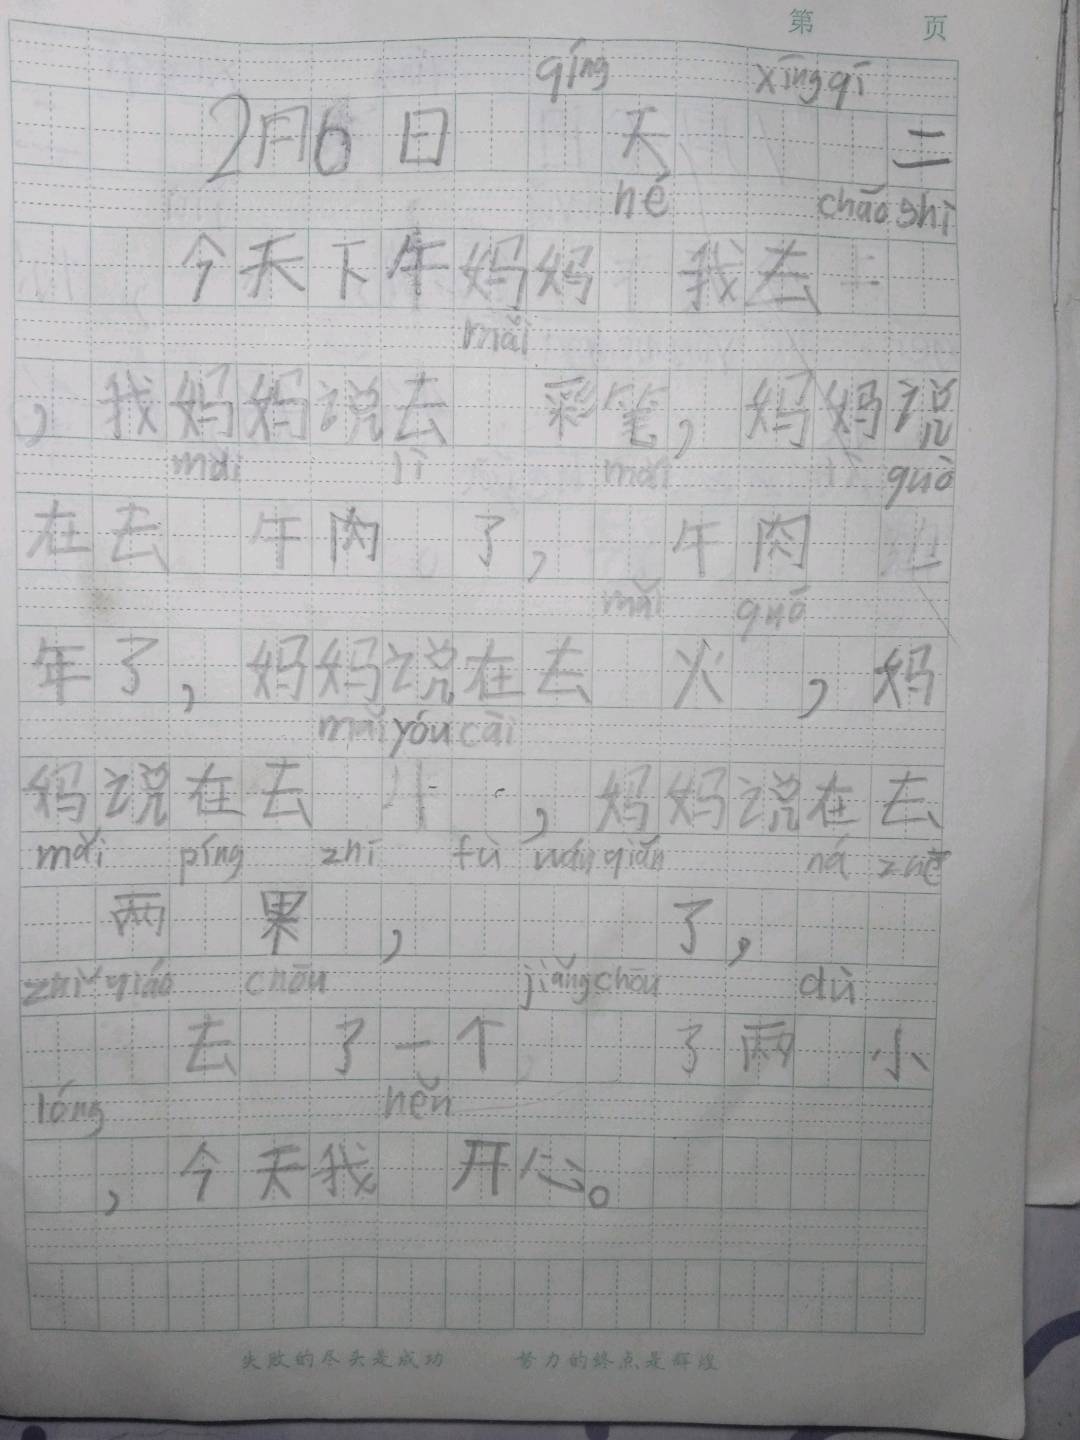 第 页
qíng xīng qī
2月6日 天 二
hé chāo shì
今天下午妈妈 我去
mǎi
，我妈妈说去 彩笔，妈妈说
mǎi lì mǎi guò
在去 午肉 了，午肉
mǎi guó
年了，妈妈说在去 火 ，妈
mǎi yóu cài
妈说在去 ，妈妈说在去
mǎi píng zhī fù qián ná
两 果 ， 了，
qiáo chōu jiǎng chōu dù
去 了一个 了两 小
lóng hěn
，今天我 开心。
失败的尽头是成功 努力的终点是辉煌